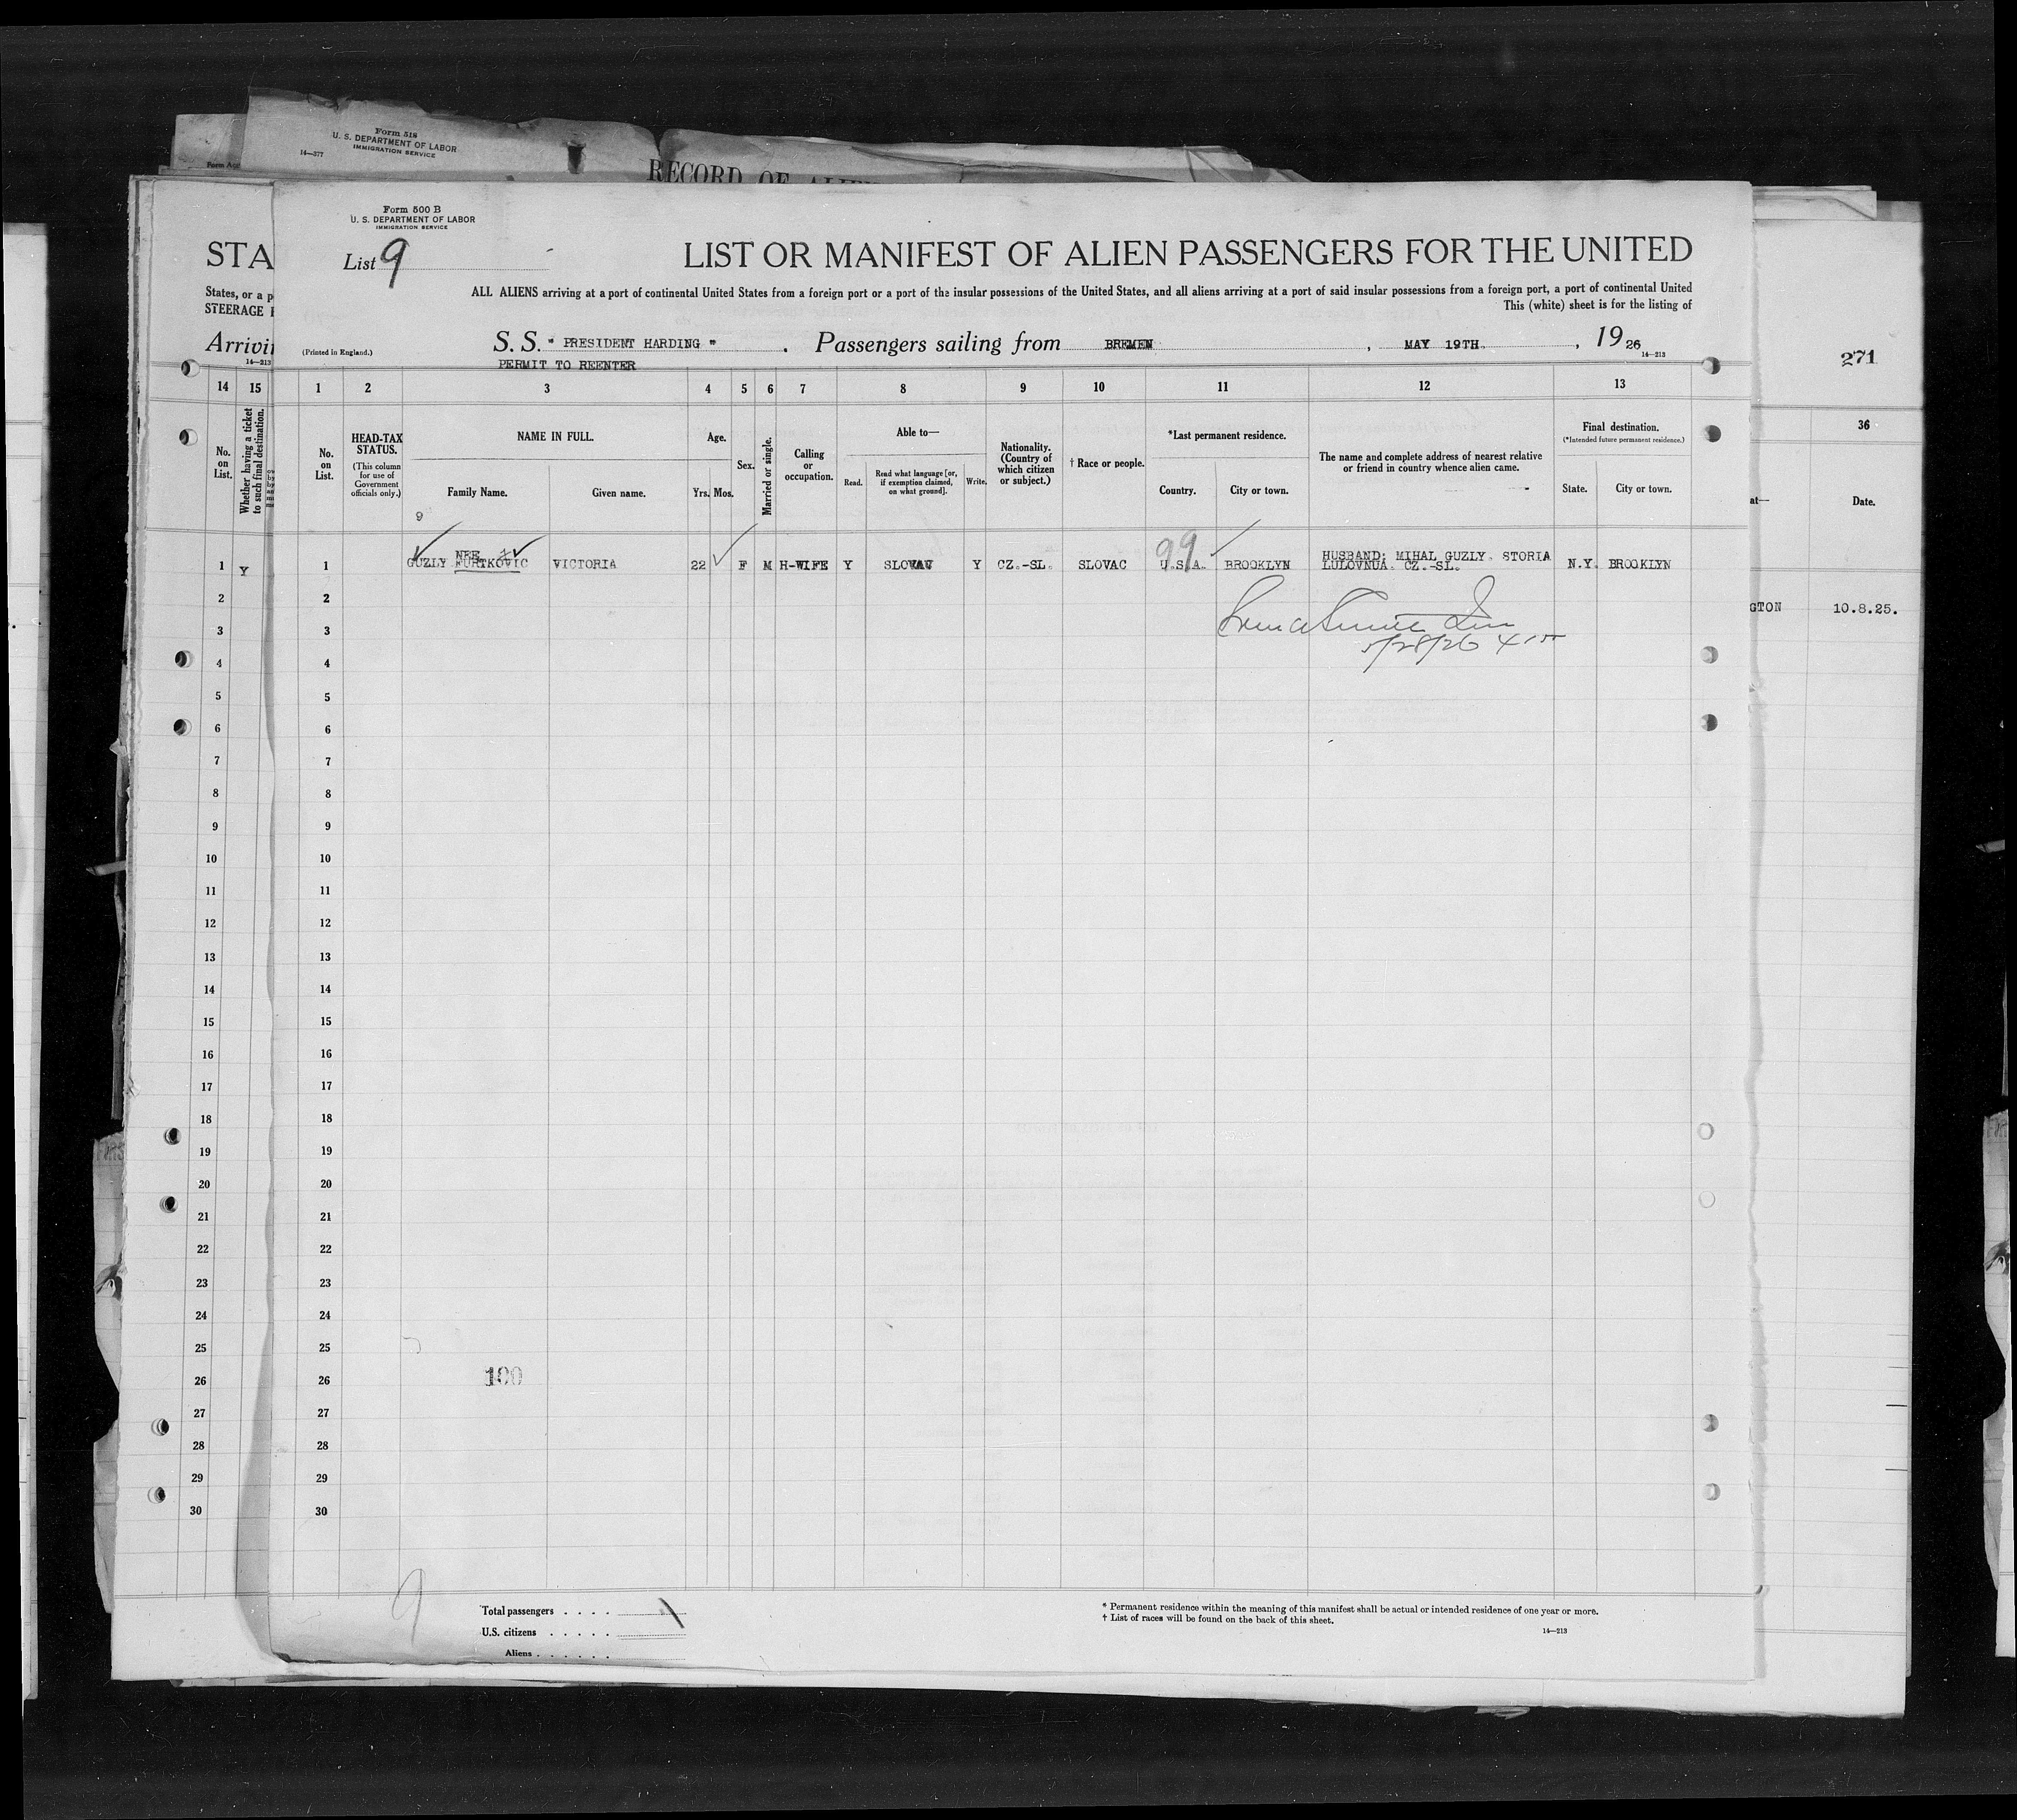 Form 518
U. S. DEPARTMENT OF LABOR
IMMIGRATION SERVICE
14—377
RECORD OF ALIEN
Form 500 B
U. S. DEPARTMENT OF LABOR
IMMIGRATION SERVICE
STA
List 9
LIST OR MANIFEST OF ALIEN PASSENGERS FOR THE UNITED
States, or a p
STEERAGE
ALL ALIENS arriving at a port of continental United States from a foreign port or a port of the insular possessions of the United States, and all aliens arriving at a port of said insular possessions from a foreign port, a port of continental United
This (white) sheet is for the listing of
Arrivi
14—213
(Printed in England.)
S. S. " PRESIDENT HARDING " . Passengers sailing from BREMEN , MAY 19TH. , 19 26
14—213
271
PERMIT TO REENTER
14 15 1 2 3 4 5 6 7 8 9 10 11 12 13
36
No. on List.
Whether having a ticket to such final destination.
No. on List.
HEAD-TAX STATUS.
(This column for use of Government officials only.)
NAME IN FULL.
Family Name.
Given name.
Age.
Yrs. Mos.
Sex.
Married or single.
Calling or occupation.
Able to—
Read.
Read what language [or, if exemption claimed, on what ground].
Write.
Nationality. (Country of which citizen or subject.)
† Race or people.
*Last permanent residence.
Country.
City or town.
The name and complete address of nearest relative or friend in country whence alien came.
Final destination.
(*Intended future permanent residence.)
State.
City or town.
at—
Date.
9
NEE
99
1 Y 1 GUZLY FURTKOVIC VICTORIA 22 F M H-WIFE Y SLOVAV Y CZ.-SL. SLOVAC U.S.A. BROOKLYN HUSBAND: MIHAL GUZLY. STORIA N.Y. BROOKLYN
LULOVNUA. CZ.-SL.
2 2
GTON 10.8.25.
3 3
5/28/26
4 4
5 5
6 6
7 7
8 8
9 9
10 10
11 11
12 12
13 13
14 14
15 15
16 16
17 17
18 18
19 19
20 20
21 21
22 22
23 23
24 24
25 25
26 26 100
27 27
28 28
29 29
30 30
9
Total passengers . . . .
U.S. citizens . . . . .
Aliens . . . . . .
* Permanent residence within the meaning of this manifest shall be actual or intended residence of one year or more.
† List of races will be found on the back of this sheet.
14—213